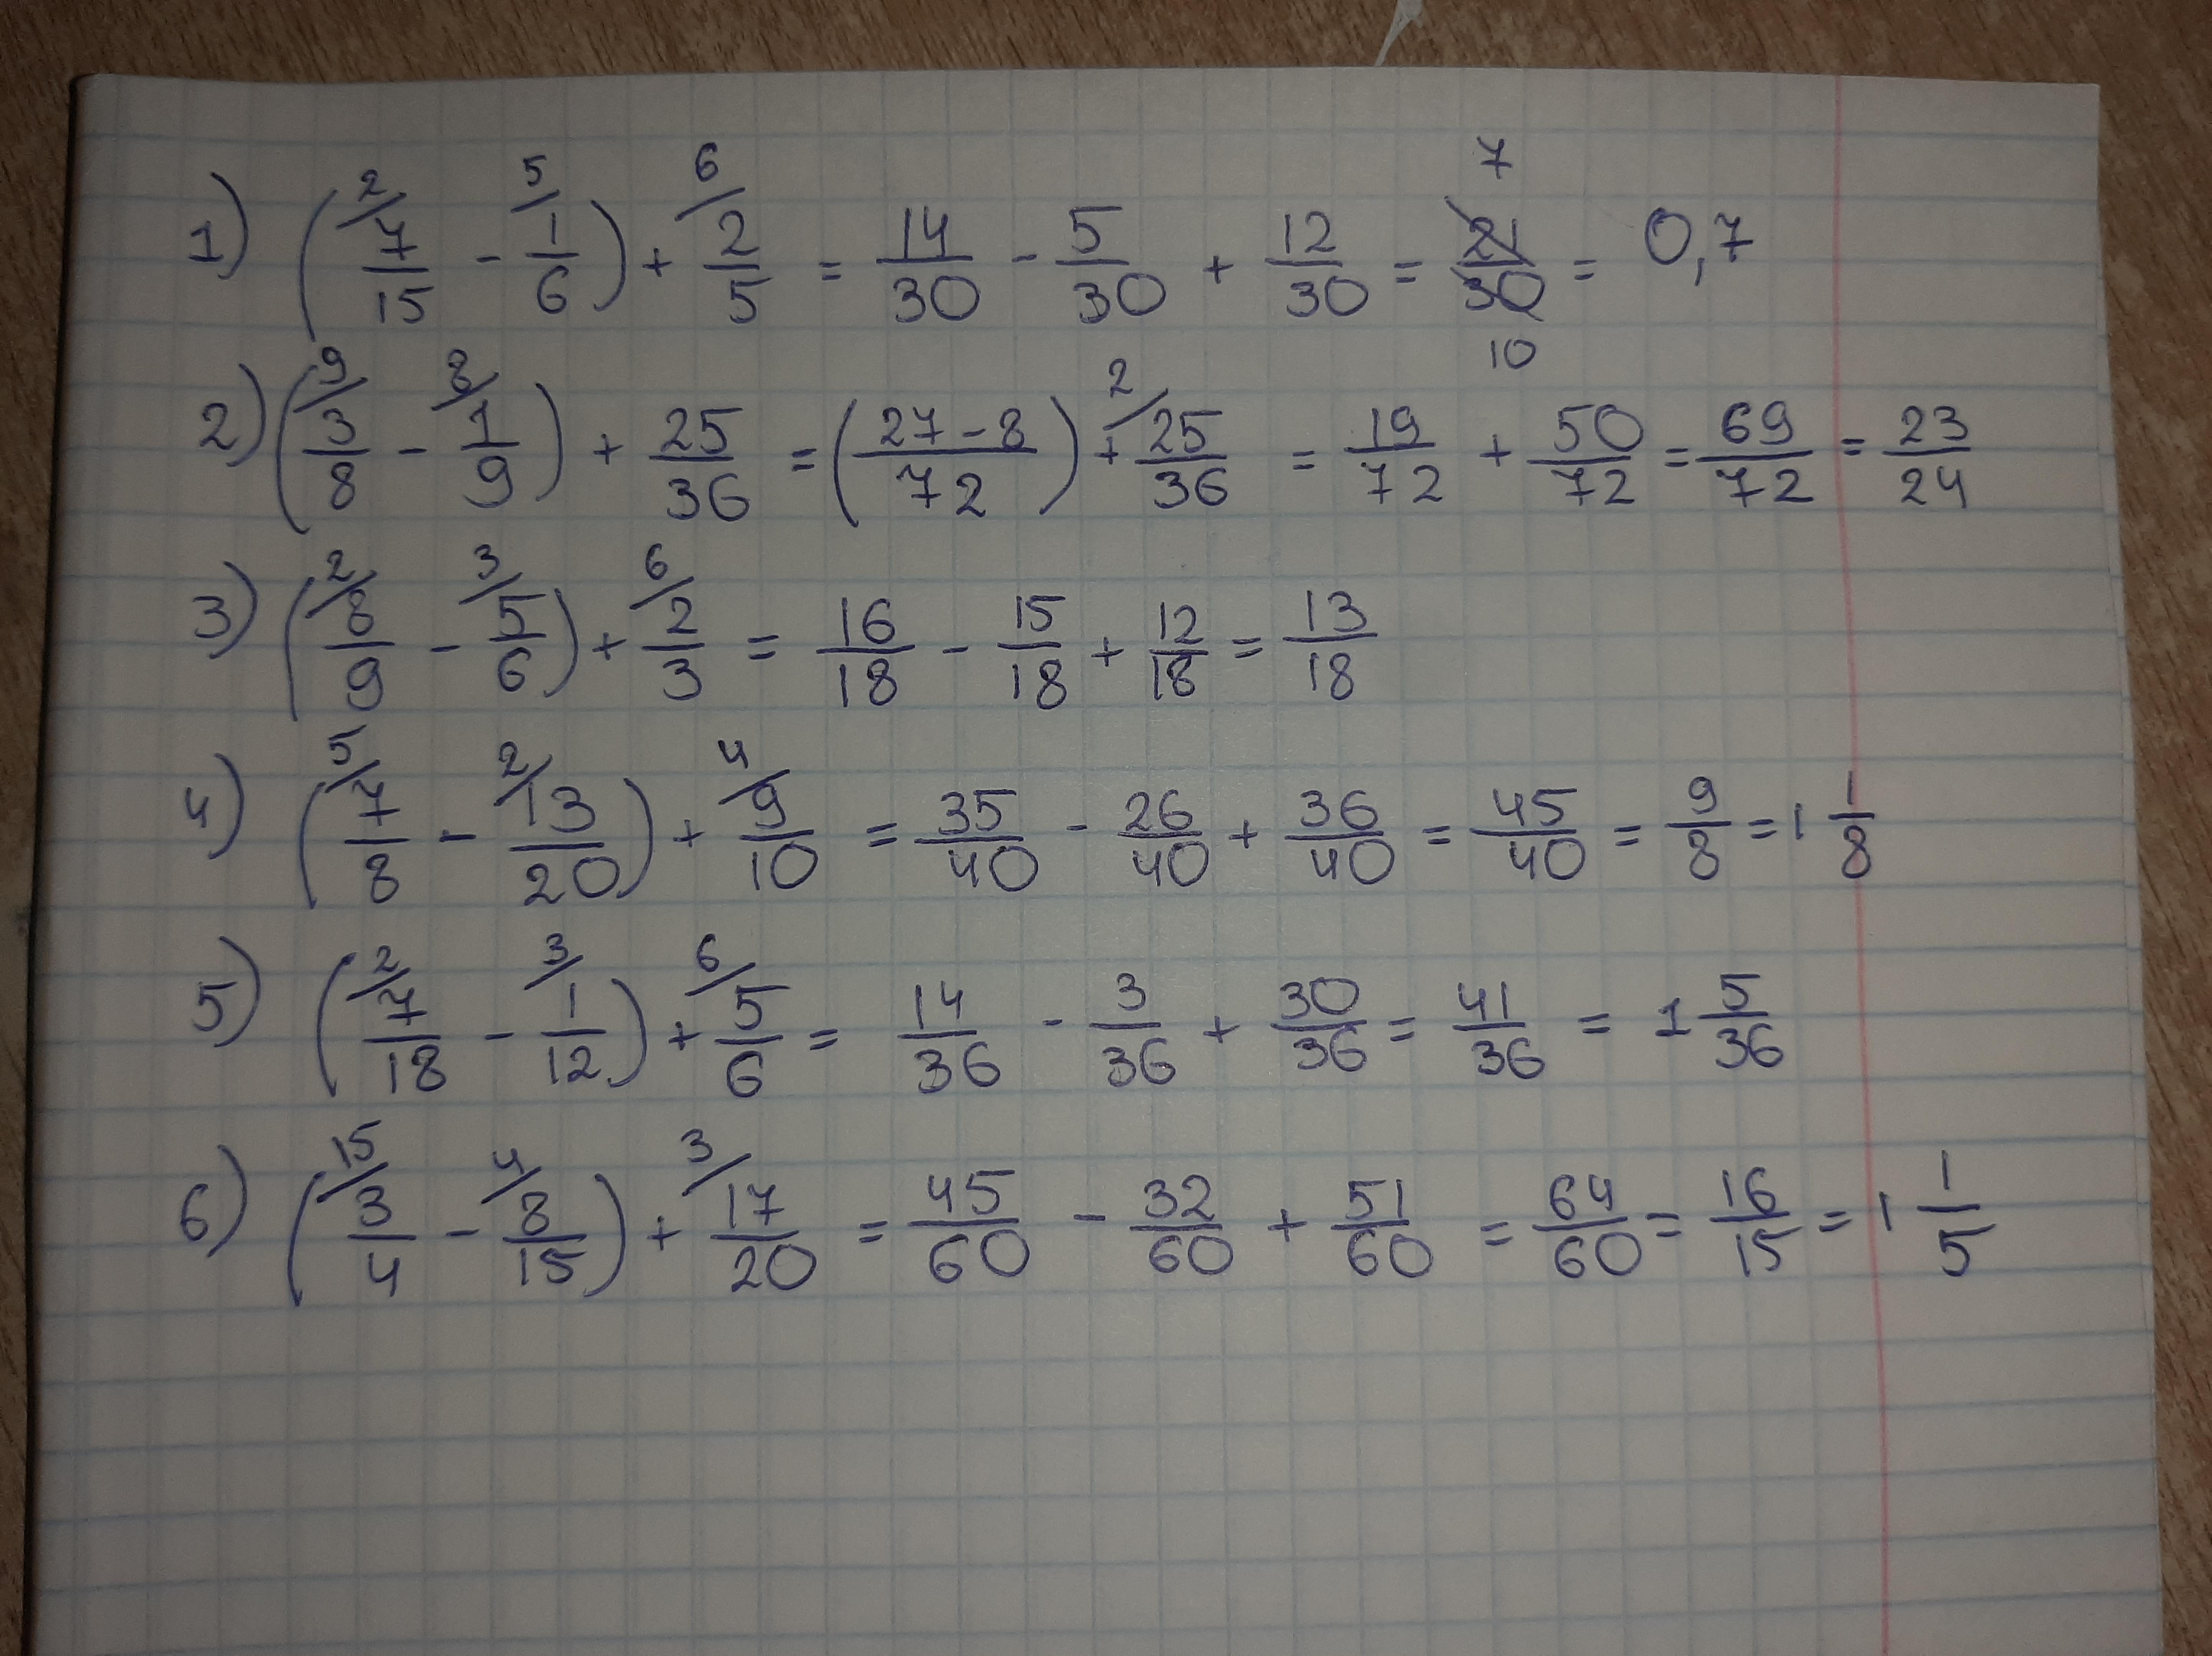 1) (²/7/15 - ⁵/1/6) + ⁶/2/5 = 14/30 - 5/30 + 12/30 = 21/30 7 10 = 0,7
2) (⁹/3/8 - ⁸/1/9) + 25/36 = (27-8/72) + ²/25/36 = 19/72 + 50/72 = 69/72 = 23/24
3) (²/8/9 - ³/5/6) + ⁶/2/3 = 16/18 - 15/18 + 12/18 = 13/18
4) (⁵/7/8 - ²/13/20) + ⁴/9/10 = 35/40 - 26/40 + 36/40 = 45/40 = 9/8 = 1 1/8
5) (²/7/18 - ³/1/12) + ⁶/5/6 = 14/36 - 3/36 + 30/36 = 41/36 = 1 5/36
6) (¹⁵/3/4 - ⁴/8/15) + ³/17/20 = 45/60 - 32/60 + 51/60 = 64/60 = 16/15 = 1 1/5